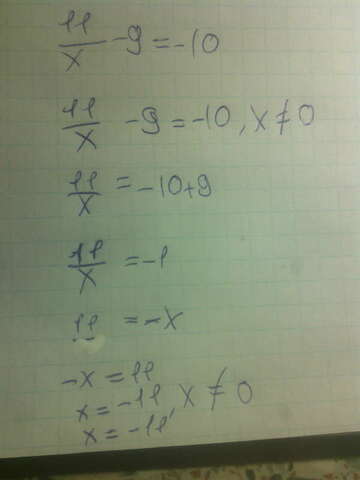 11/x -9=-10
11/x -9=-10, x≠0
11/x =-10+9
11/x =-1
11 =-x
-x=11
x=-11, x≠0
x=-11